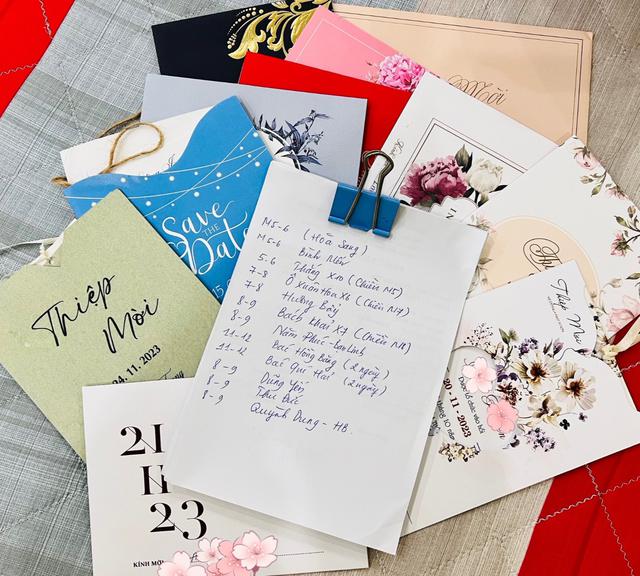 Mời
Save
THE
Date
Thiệp
Mời
24.11.2023
M5-6 (Hòa Sang)
M5-6 Bình Mến
5-6 Thắng X10 (Chiều M5)
7-8 Ô Xuân Hoa X6 (Chiều N17)
7-8 Hường Bảy
8-9 Bác Khai X7 (Chiều N18)
8-9 Năm Phúc - Lan Linh
11-12 Bác Hồng Bằng (2 ngày)
11-12 Bác Quí Hai (2 ngày)
8-9 Dũng Yến
8-9 Thu Đức
8-9 Quỳnh Dung - HB.
Thiệp Mời
20 - 11 - 2023
tháng 10 năm
21
11
23
KÍNH MỜI